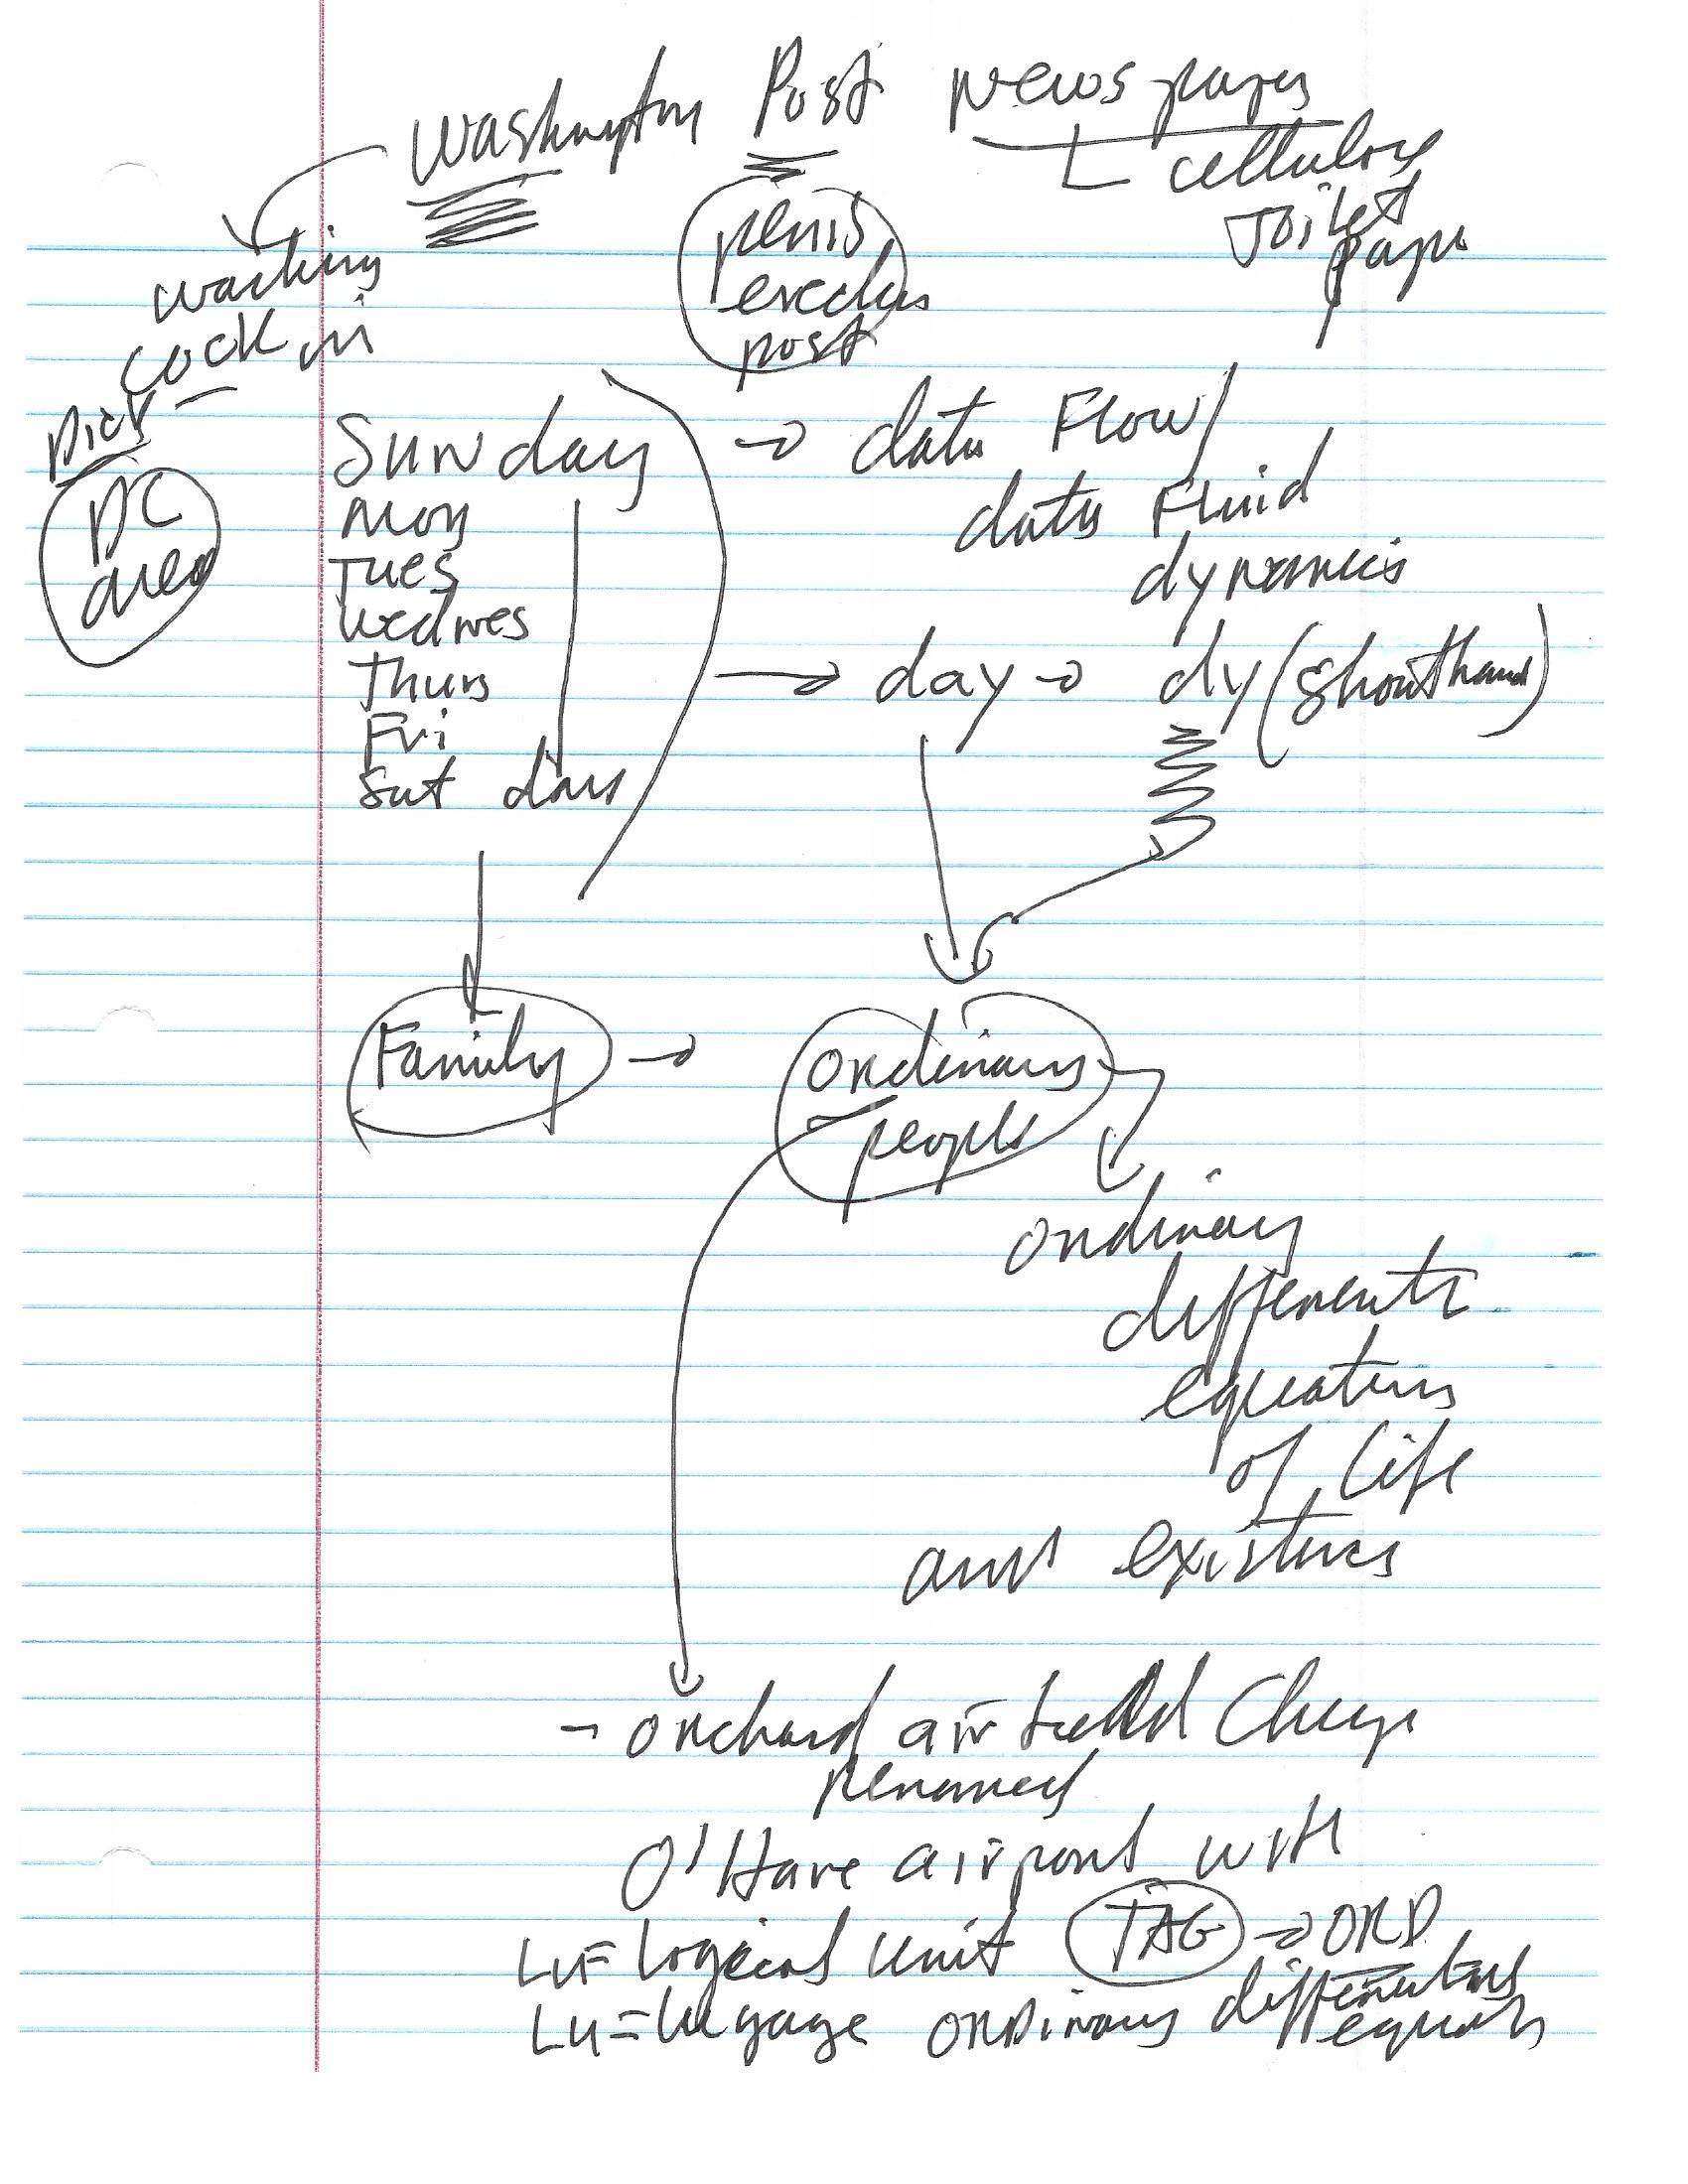 Washington Post Newspaper
cellulose
Toilet
paper
washing
cock in
Dick
DC
area
penis
erection
post
Sunday
Mon
Tues
Wednes
Thurs
Fri
Sat days
→ data Flow/
data Fluid
dynamics
→ day → dy (shorthand)
Family →
ordinary
people
ordinary
differential
equations
of life
and existence
- orchard air field Chicago
renamed
O'Hare airport with
LU= logical unit TAG → ORD
LU = luggage ORDinary differential
equations